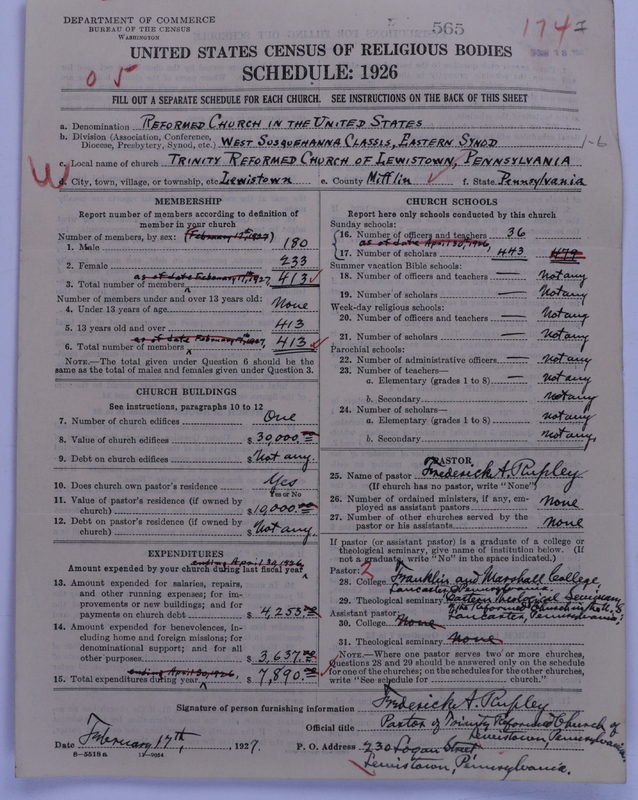 DEPARTMENT OF COMMERCE
BUREAU OF THE CENSUS
WASHINGTON
565
1747
05
UNITED STATES CENSUS OF RELIGIOUS BODIES
SCHEDULE: 1926
FILL OUT A SEPARATE SCHEDULE FOR EACH CHURCH. SEE INSTRUCTIONS ON THE BACK OF THIS SHEET
a. Denomination REFORMED CHURCH IN THE UNITED STATES
b. Division (Association, Conference, Diocese, Presbytery, Synod, etc.) WEST SUSQUEHANNA CLASSIS, EASTERN SYNOD 1-6
c. Local name of church TRINITY REFORMED CHURCH OF LEWISTOWN, PENNSYLVANIA
W
d. City, town, village, or township, etc Lewistown e. County Mifflin f. State Pennsylvania
MEMBERSHIP
Report number of members according to definition of member in your church
Number of members, by sex: (February 17th, 1927)
1. Male 180
2. Female 233
as of date February 17th, 1927,
3. Total number of members 413
Number of members under and over 13 years old:
4. Under 13 years of age None
5. 13 years old and over 413
as of date February 17th, 1927,
6. Total number of members 413
NOTE.—The total given under Question 6 should be the same as the total of males and females given under Question 3.
CHURCH BUILDINGS
See instructions, paragraphs 10 to 12
7. Number of church edifices One
8. Value of church edifices $ 30,000.00
9. Debt on church edifices $ Not any.
10. Does church own pastor's residence? Yes
Yes or No
11. Value of pastor's residence (if owned by church) $ 10,000.00
12. Debt on pastor's residence (if owned by church) $ Not any.
EXPENDITURES
ending April 30, 1926
Amount expended by your church during last fiscal year
13. Amount expended for salaries, repairs, and other running expenses; for improvements or new buildings; and for payments on church debt $ 4,253.00
14. Amount expended for benevolences, including home and foreign missions; for denominational support; and for all other purposes $ 3,637.00
ending April 30, 1926,
15. Total expenditures during year $ 7,890.00
CHURCH SCHOOLS
Report here only schools conducted by this church
Sunday schools:
16. Number of officers and teachers 36
as of date April 30th, 1926,
17. Number of scholars 443 479
Summer vacation Bible schools:
18. Number of officers and teachers — Not any
19. Number of scholars — Not any
Week-day religious schools:
20. Number of officers and teachers — Not any
21. Number of scholars — Not any
Parochial schools:
22. Number of administrative officers — Not any
23. Number of teachers—
a. Elementary (grades 1 to 8) — not any
b. Secondary not any
24. Number of scholars—
a. Elementary (grades 1 to 8) — not any
b. Secondary not any,
PASTOR
25. Name of pastor Frederick A. Rupley
(If church has no pastor, write "None")
26. Number of ordained ministers, if any, employed as assistant pastors None
27. Number of other churches served by the pastor or his assistants None
If pastor (or assistant pastor) is a graduate of a college or theological seminary, give name of institution below. (If not a graduate, write "No" in the space indicated.)
Pastor: 2
28. College Franklin and Marshall College,
Lancaster, Pennsylvania
29. Theological seminary Eastern Theological Seminary
of the Reformed Church in the U. S.
Assistant pastor: Lancaster, Pennsylvania:
30. College None
31. Theological seminary None
NOTE.—Where one pastor serves two or more churches, Questions 28 and 29 should be answered only on the schedule for one of the churches; on the schedules for the other churches, write "See schedule for ........ church."
Signature of person furnishing information Frederick A. Rupley
Official title Pastor of Trinity Reformed Church of
Lewistown, Pennsylvania.
Date February 17th, 1927. P. O. Address 230 Logan Street
Lewistown, Pennsylvania.
8—5518 a 11—9054